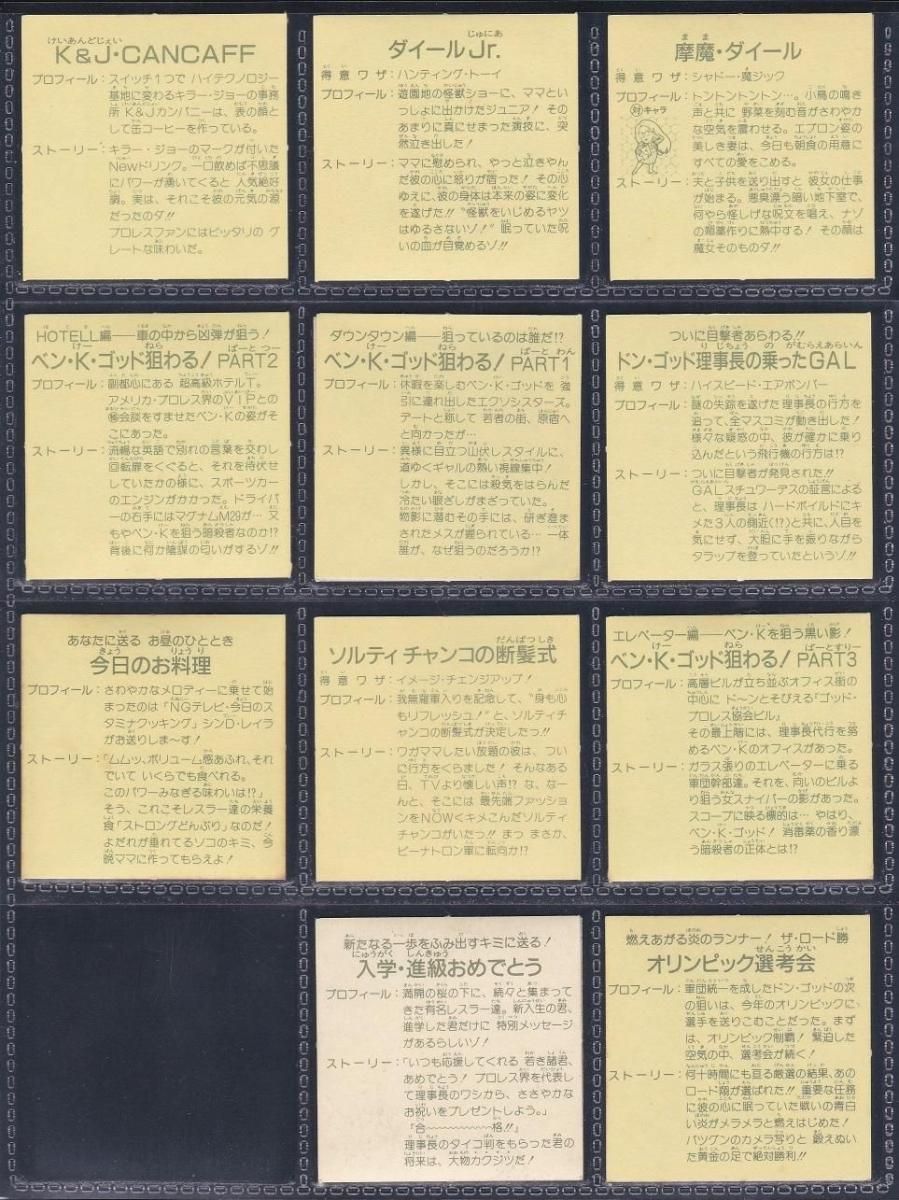 けいあんどじぇい
K&J・CANCAFF
プロフィール：スイッチ1つで ハイテクノロジー
基地に変わるキラー・ジョーの事務
所 K&Jカンパニーは、表の顔と
して缶コーヒーを作っている。
ストーリー：キラー・ジョーのマークが付いた
Newドリンク。一口飲めば不思議
にパワーが湧いてくると 人気絶好
調。実は、それこそ彼の元気の源
だったのダ!!
プロレスファンにはピッタリの グ
レートな味わいだ。
じゅにあ
ダイールJr.
得意ワザ：ハンティング・トーイ
プロフィール：遊園地の怪獣ショーに、ママとい
っしょに出かけたジュニア! その
あまりに真にせまった演技に、突
然泣き出した!
ストーリー：ママに慰められ、やっと泣きやん
だ彼の心に怒りが宿った! その心
ゆえに、彼の身体は本来の姿に変化
を遂げた!! “怪獣をいじめるヤツ
はゆるさないゾ!” 眠っていた呪
いの血が目覚めるゾ!!
まま
摩魔・ダイール
得意ワザ：シャドー・魔ジック
プロフィール：トントントントン…。小鳥の鳴き
声と共に 野菜を刻む音がさわやか
な空気を震わせる。エプロン姿の
美しき妻は、今日も朝食の用意に
すべての愛をこめる。
対キャラ
ストーリー：夫と子供を送り出すと 彼女の仕事
が始まる。悪臭漂う暗い地下室で、
何やら怪しげな呪文を唱え、ナゾ
の媚薬作りに熱中する! その顔は
魔女そのものダ!!
HOTELL編──車の中から凶弾が狙う!
けー ねら ぱーと つー
ベン・K・ゴッド狙わる! PART2
プロフィール：副都心にある 超高級ホテルT。
アメリカ・プロレス界のVIPとの
㊙会談をすませたベン・Kの姿がそ
こにあった。
ストーリー：流暢な英語で別れの言葉を交わし
回転扉をくぐると、それを待伏せ
していたかの様に、スポーツカー
のエンジンがかかった。ドライバ
ーの右手にはマグナムM29が… 又
もやベン・Kを狙う暗殺者なのか!?
背後に何か陰謀の匂いがするゾ!!
ダウンタウン編──狙っているのは誰だ!?
けー ねら ぱーと わん
ベン・K・ゴッド狙わる! PART1
プロフィール：休暇を楽しむベン・K・ゴッドを 強
引に連れ出したエクソシスターズ。
デートと称して 若者の街、原宿へ
と向かったが…
ストーリー：異様に目立つ山伏レスタイルに、
道ゆくギャルの熱い視線集中!
しかし、そこには殺気をはらんだ
冷たい眼ざしがまざっていた。
物影に潜むその手には、研ぎ澄ま
されたメスが握られている… 一体
誰が、なぜ狙うのだろうか!?
ついに目撃者あらわる!!
りじちょう の がむらえあらいん
ドン・ゴッド理事長の乗ったGAL
得意ワザ：ハイスピード・エアボンバー
プロフィール：謎の失踪を遂げた 理事長の行方を
追って、全マスコミが動き出した!
様々な疑惑の中、彼が確かに乗り
込んだという飛行機の行方は!?
ストーリー：ついに目撃者が発見された!!
GALスチュワーデスの証言による
と、理事長は ハードボイルドにキ
メた3人の側近(!?)と共に、人目を
気にせず、大胆に手を振りながら
タラップを登っていたというゾ!!
あなたに送る お昼のひととき
きょう りょうり
今日のお料理
プロフィール：さわやかなメロディーに乗せて始
まったのは「NGテレビ・今日のス
タミナクッキング」シンD・レイラ
がお送りしま〜す!
ストーリー：「ムムッ、ボリューム感あふれ、そ
れでいて いくらでも食べれる。
このパワーみなぎる味わいは!?」
そう、これこそレスラー達の栄養
食「ストロングどんぶり」なのだ!
よだれが垂れてるソコのキミ、今
晩ママに作ってもらえよ!
だんぱつしき
ソルティチャンコの断髪式
得意ワザ：イメージ・チェンジアップ!
プロフィール：我無羅軍入りを記念して、“身も心
もリフレッシュ!”と、ソルティチ
ャンコの断髪式が決定したっ!!
ストーリー：ワガママしたい放題の彼は、つい
に行方をくらました! そんなある
日、TVより懐しい声!? な、なー
んと、そこには 最先端ファッション
をNOWくキメこんだソルティチ
ャンコがいたっ!! まっ まさか、
ピーナトロン軍に転向か!?
エレベーター編──ベン・Kを狙う黒い影!
けー ねら ぱーとすりー
ベン・K・ゴッド狙わる! PART3
プロフィール：高層ビルが立ち並ぶオフィス街の
中心に ドーンとそびえる『ゴッド・
プロレス協会ビル』
その最上階には、理事長代行を努
めるベン・Kのオフィスがあった。
ストーリー：ガラス張りのエレベーターに乗る
軍団幹部達。それを、向いのビルよ
り狙う女スナイパーの影があった。
スコープに映る標的は… やはり、
ベン・K・ゴッド! 消毒薬の香り漂
う暗殺者の正体とは!?
新たなる一歩をふみ出すキミに送る!
にゅうがく しんきゅう
入学・進級おめでとう
プロフィール：満開の桜の下に、続々と集まって
きた有名レスラー達。新入生の君、
進学した君だけに 特別メッセージ
があるらしいゾ!
ストーリー：「いつも応援してくれる 若き諸君、
あめでとう! プロレス界を代表し
て理事長のワシから、ささやかな
お祝いをプレゼントしよう。」
「合〜〜〜〜〜格!!」
理事長のタイコ判をもらった君の
将来は、大物カクジツだ!
燃えあがる炎のランナー! ザ・ロード勝
せんこうかい
オリンピック選考会
プロフィール：軍団統一を成したドン・ゴッドの次
の狙いは、今年のオリンピックに、
選手を送りこむことだった。まず
は、オリンピック制覇! 緊迫した
空気の中、選考会が続く!
ストーリー：何十時間にも亘る厳選の結果、あの
ロード翔が選ばれた!! 重要な任務
に彼の心に眠っていた戦いの青白
い炎がメラメラと燃えはじめた!
バツグンのカメラ写りと 鍛えぬい
た黄金の足で絶対勝利!!